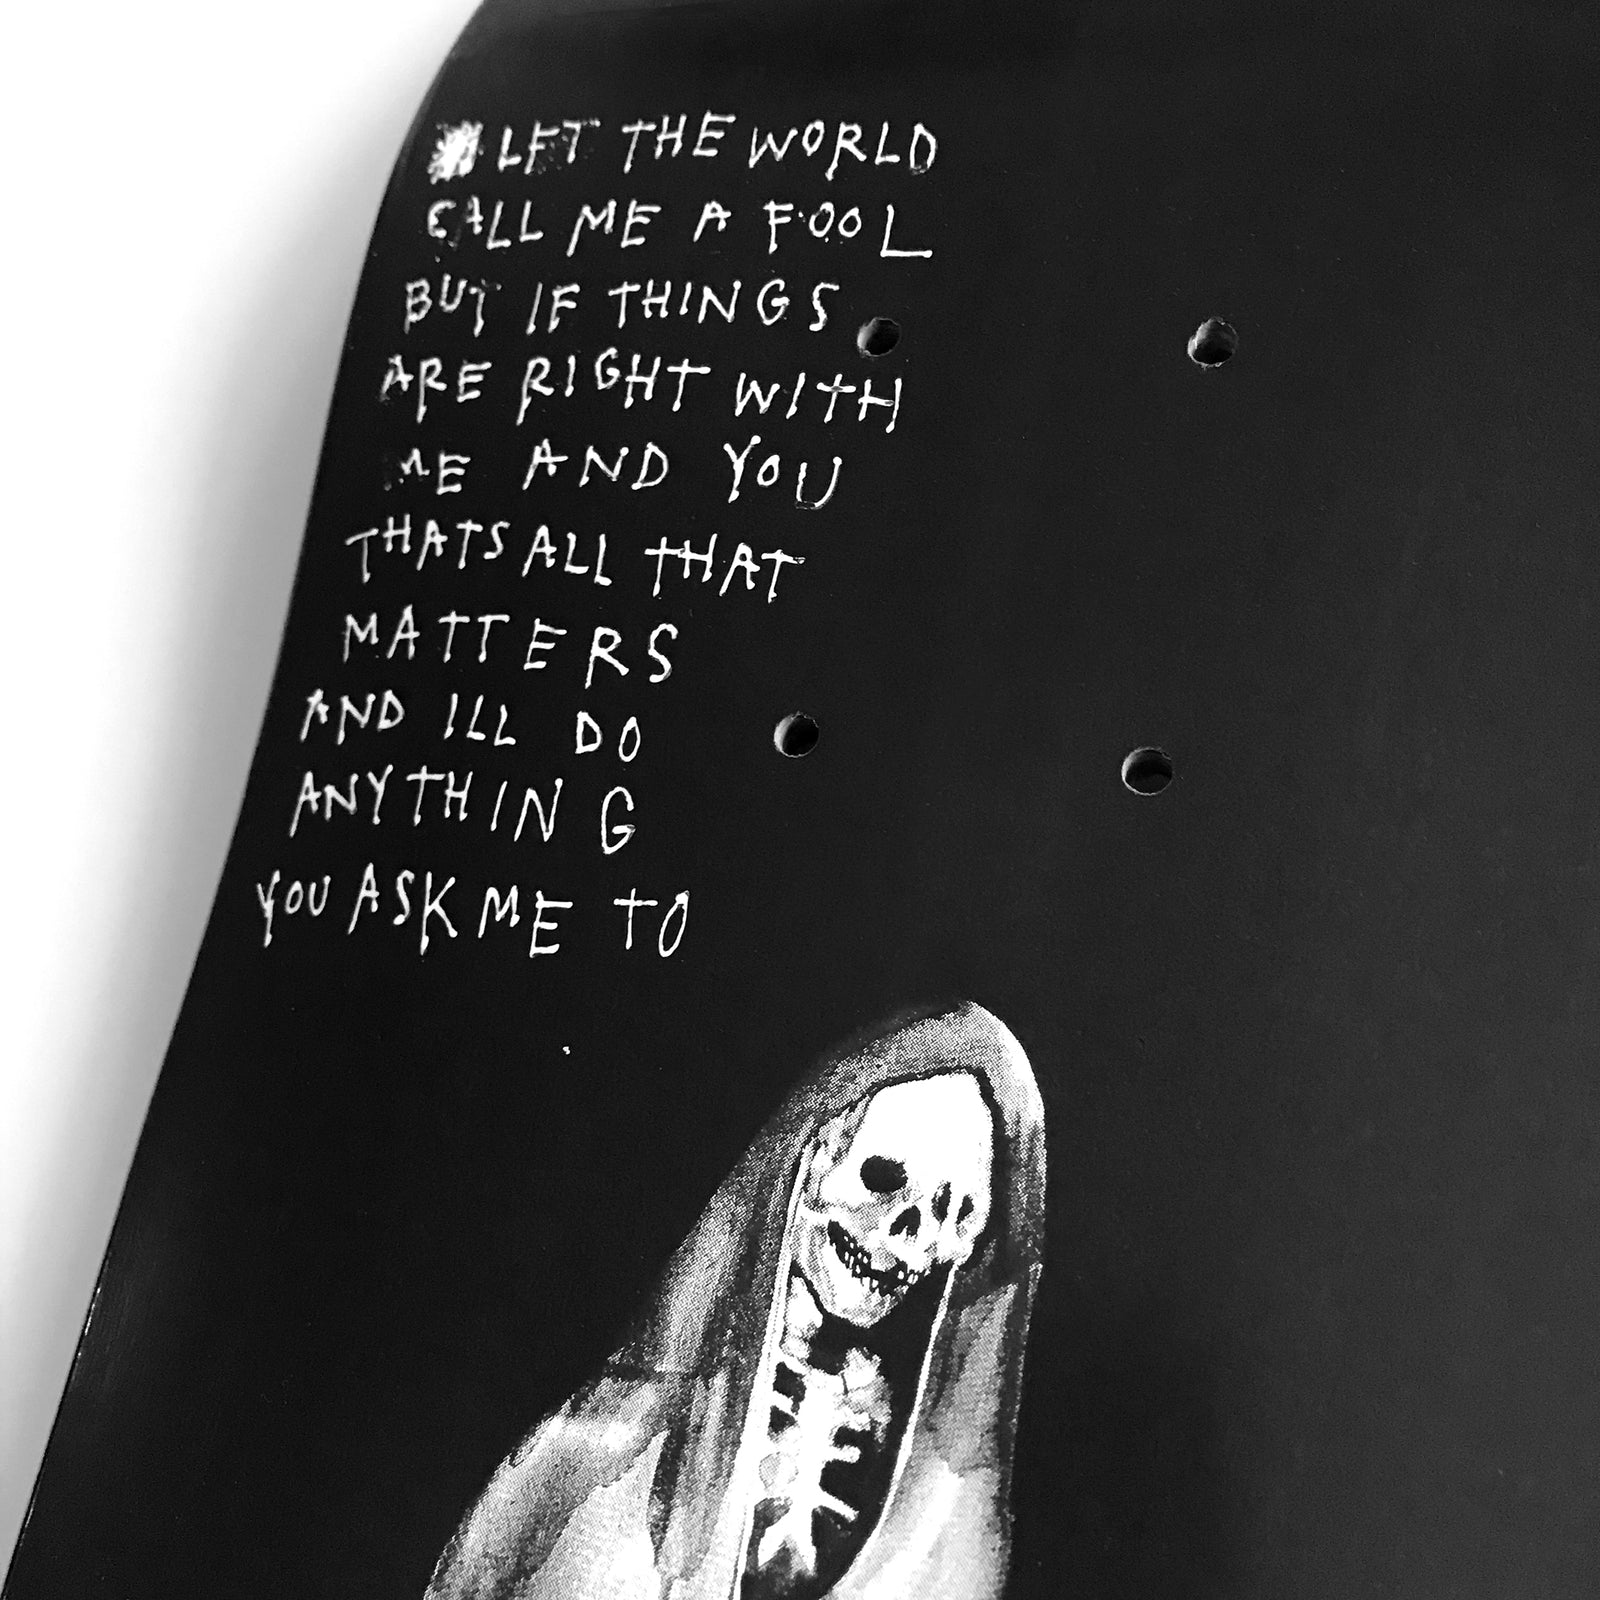 LET THE WORLD
CALL ME A FOOL
BUT IF THINGS
ARE RIGHT WITH
ME AND YOU
THATS ALL THAT
MATTERS
AND ILL DO
ANYTHING
YOU ASK ME TO